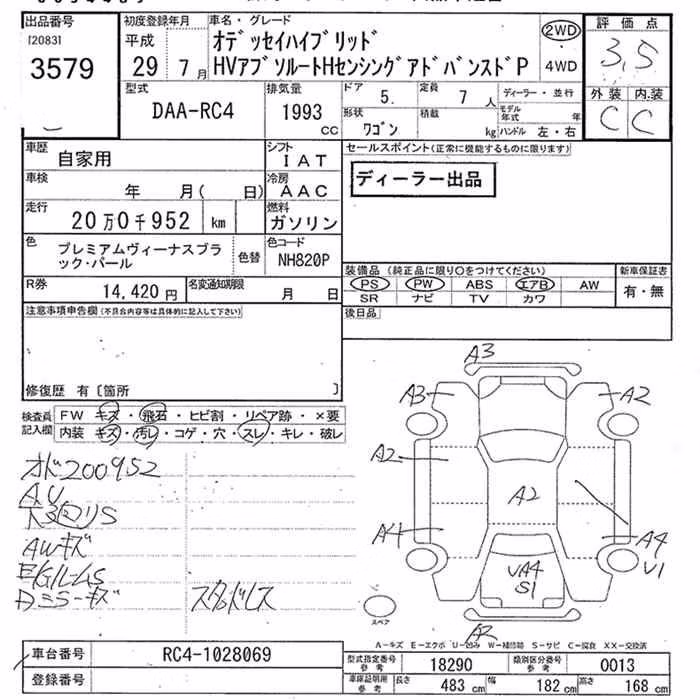 出品番号
[2083]
3579
初度登録年月
平成
29 7月
車名・グレード
オデッセイハイブリッド
HVアブソルートHセンシングアドバンスドP
2WD
・
4WD
評価点
3.5
外装 内装
C C
型式
DAA-RC4
排気量
1993
cc
ドア
5.
定員
7人
ディーラー・並行
モデル年式 年
形状
ワゴン
積載
kg
ハンドル 左・右
車歴
自家用
シフト
IAT
セールスポイント(正常に機能するものに限ります)
ディーラー出品
車検
年 月( 日)
冷房
AAC
走行
20万0千952 km
燃料
ガソリン
色
プレミアムヴィーナスブラ
ック・パール
色替
色コード
NH820P
R券
14,420円
名変通知期限
月 日
装備品 (純正品に限り○をつけてください)
PS PW ABS エアB AW
SR ナビ TV カワ
新車保証書
有・無
注意事項申告欄(不具合内容等は具体的に記入して下さい)
後日品
修復歴 有〔箇所 〕
検査員
記入欄
FW キズ・飛石・ヒビ割・リペア跡・×要
内装 キズ・汚レ・コゲ・穴・スレ・キレ・破レ
オド200952
A.U
下回りS
AWキズ
E/GルームS
Dミラーキズ
スタッドレス
A3
A3
A2
A2
A2
A4
A4
V1
UA4
S1
A2
スペア
A−キズ E−エクボ U−凹み W−補修跡 S−サビ C−腐食 XX−交換済
車台番号
RC4-1028069
登録番号
型式指定番号
参考
18290
類別区分番号
参考
0013
車庫証明用
参考
長さ
483 cm
幅
182 cm
高さ
168 cm